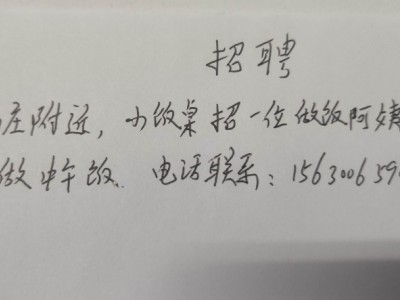 招聘
庄附近，小饭桌招一位做饭阿姨
做中午饭. 电话联系：15630065